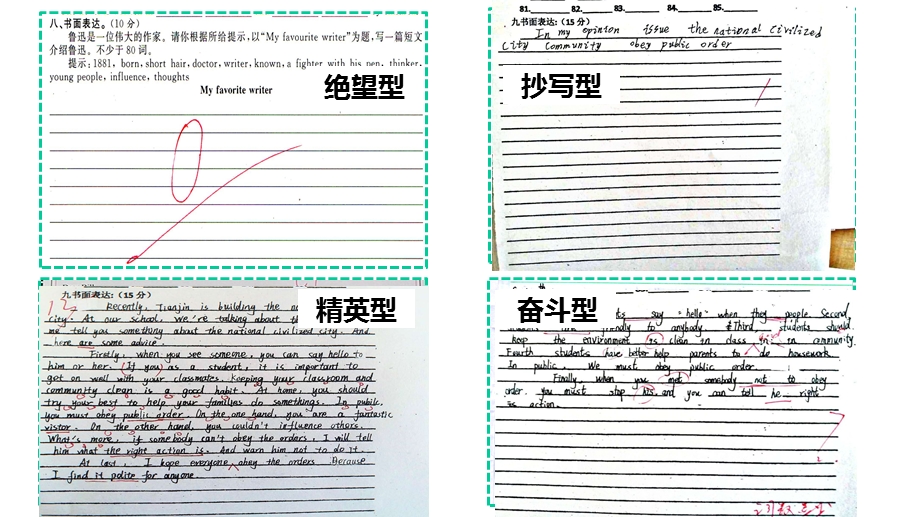 八、书面表达。(10 分)
鲁迅是一位伟大的作家。请你根据所给提示,以“My favourite writer”为题,写一篇短文
介绍鲁迅。不少于 80 词。
提示:1881, born, short hair, doctor, writer, known, a fighter with his pen, thinker,
young people, influence, thoughts
绝望型
My favorite writer
81. 82. 83. 84. 85.
九书面表达:(15 分)
In my opinion issue the national civilized
city Community obey public order
抄写型
九书面表达:(15 分)
Recently, Tianjin is building the
city. At our school, we're talking about
me tell you something about the national civilized city. And
here are some advice.
精英型
Firstly, when you see someone, you can say hello to
him or her. If you as a student, it is important to
get on well with your classmates. Keeping your classroom and
community clean is a good habit. At home you should
try your best to help your families do somethings. In public,
you must obey public order. On the one hand, you are a fantastic
vistor. On the other hand, you couldn't influence others.
What's more, if somebody can't obey the orders, I will tell
him what the right action is. And warn him not to do it.
At last, I hope everyone obey the orders. Because
I find it polite for anyone.
奋斗型
say "hello" when they people. Second,
friendly to anybody. Third, students should
keep the environment is clean in class in community.
Fourth students have better help parents to do housework.
In public. We must obey public order.
Finally when you met somebody not to obey
order. you must stop his and you can tell he right
is action.